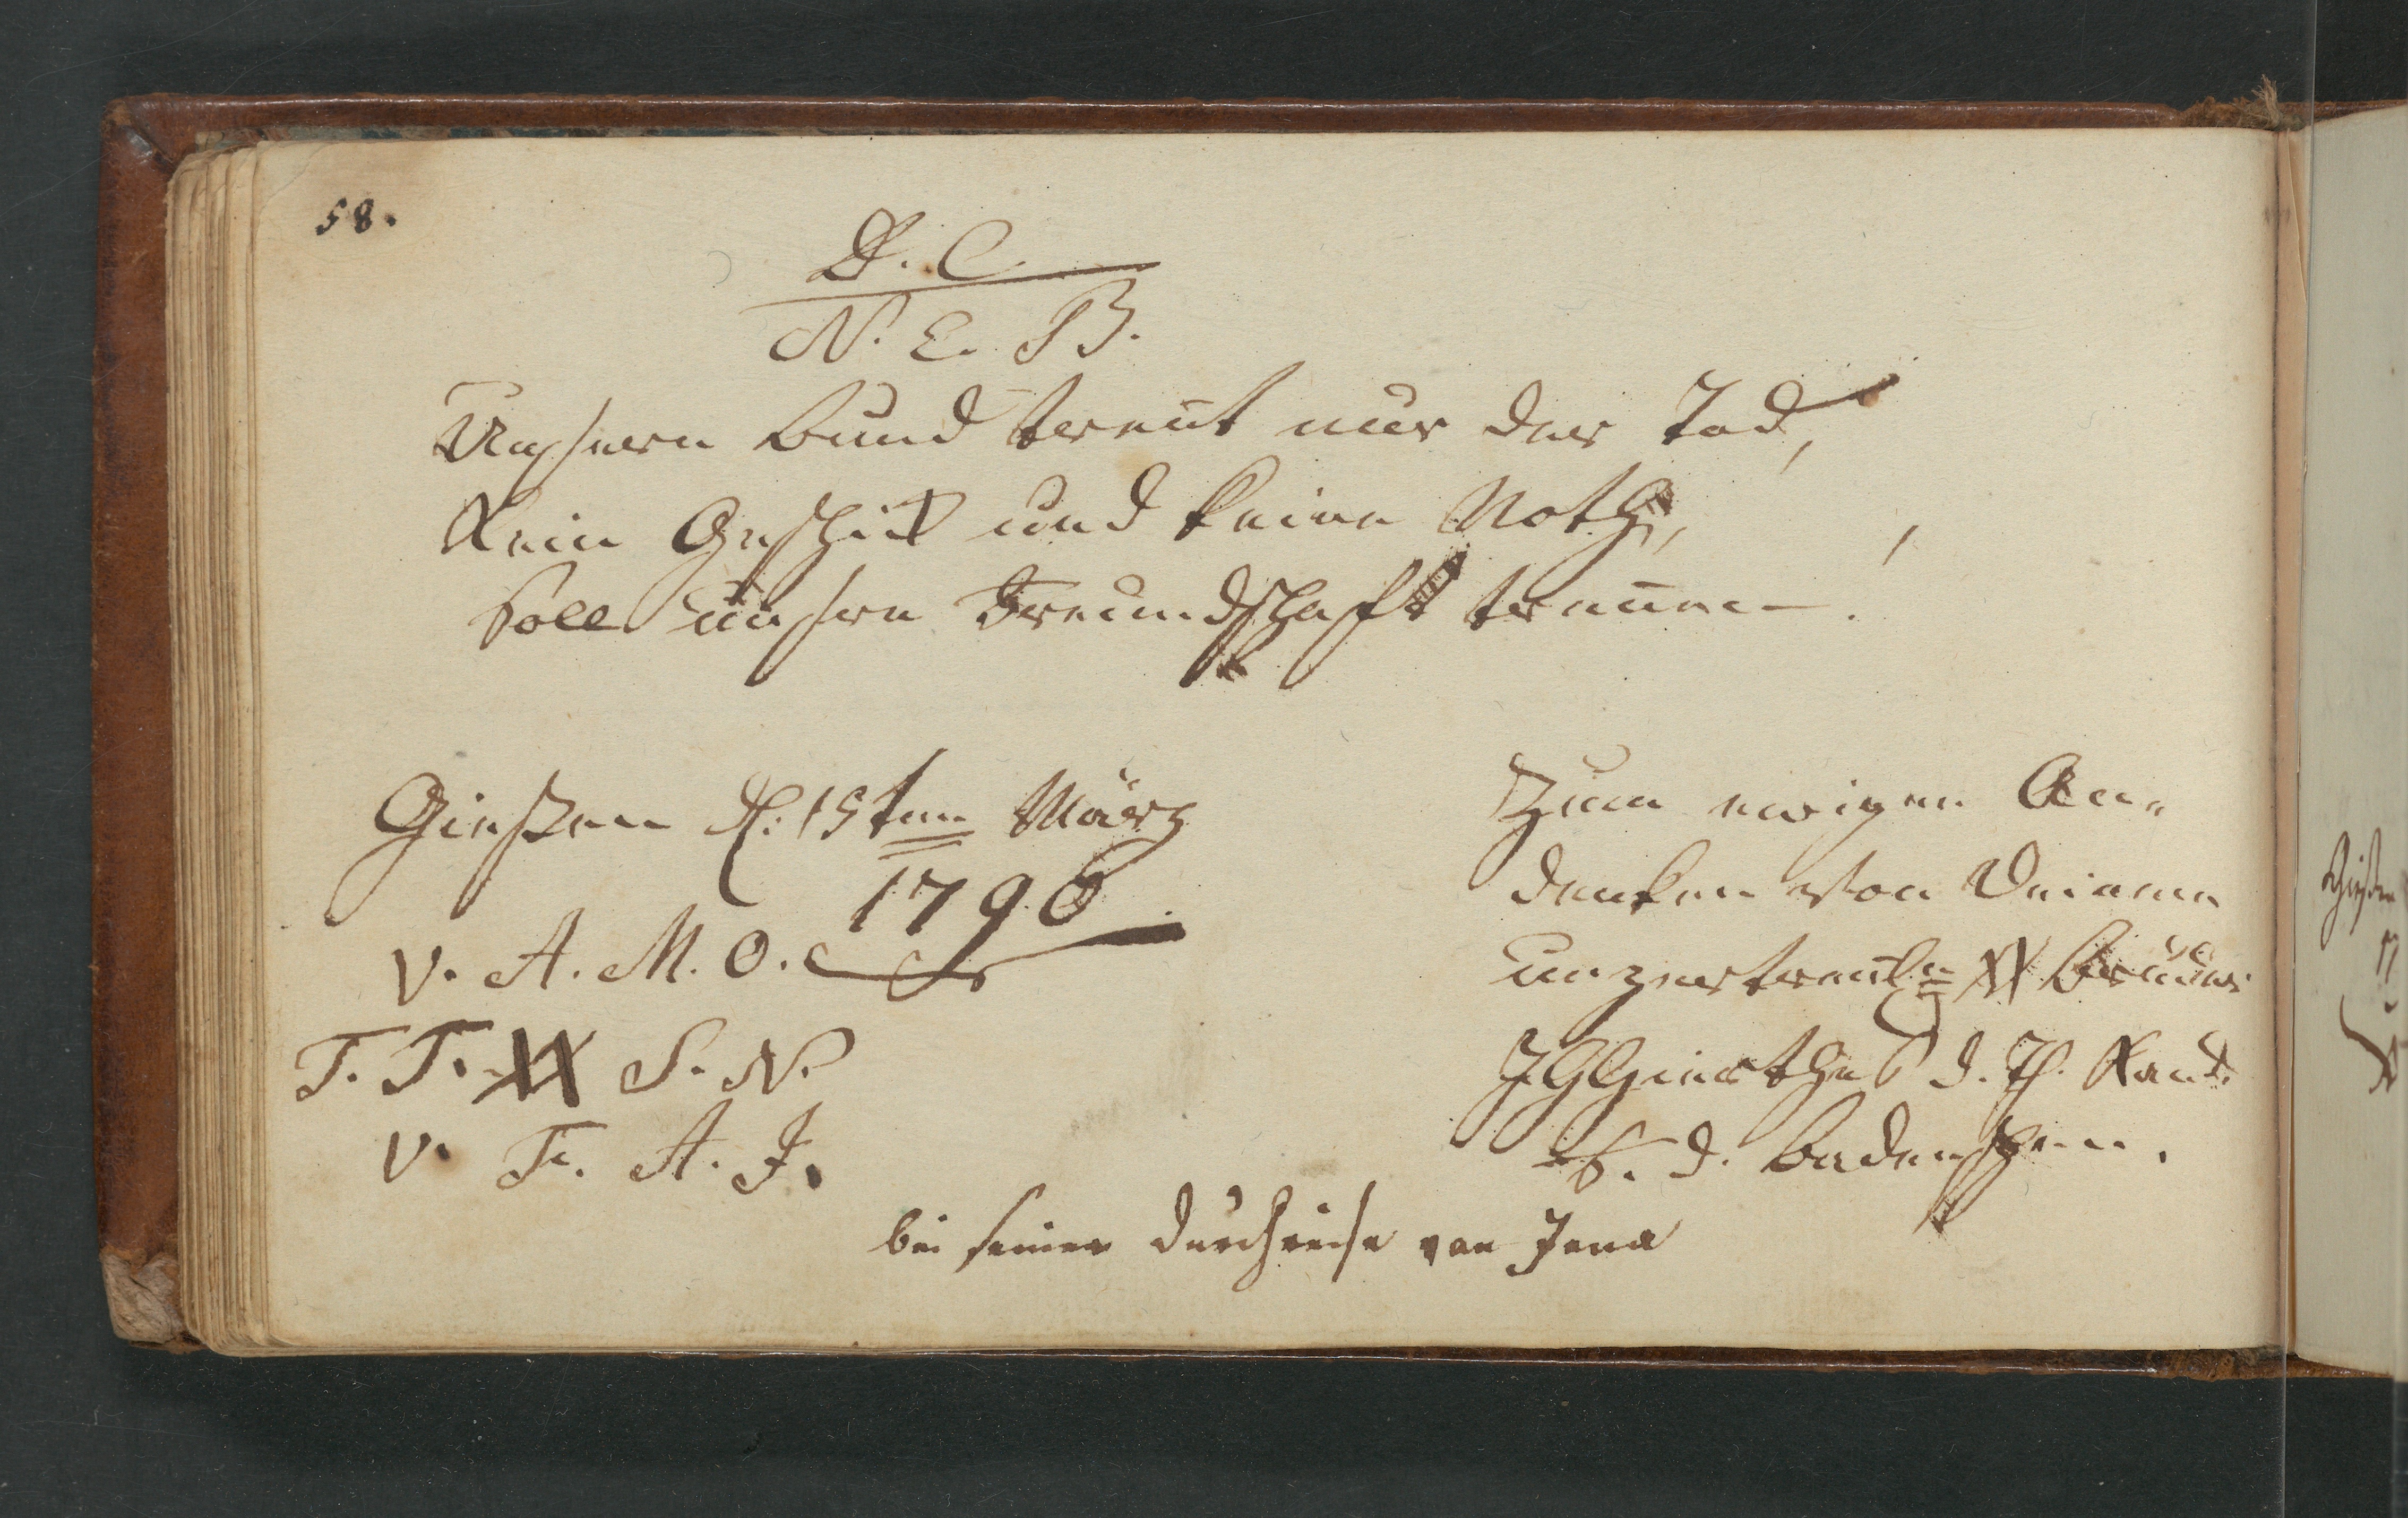 58.
D. C.
N. E. B.
Unsern Bund trent nur der Tod,
Kein Geschik und keine Noth,
Soll unsre Freundschaft trennen.
Gieszen d. 15ten März
1796
V. A. M. O.
T. T. XX S. N.
V. F. A. J.
Zum ewigen An-
denken von Deinem
unzertrenl. XX Bruder
d. Th. Kand.
a. d. Badenschen.
bei seiner Durchreise von Jena